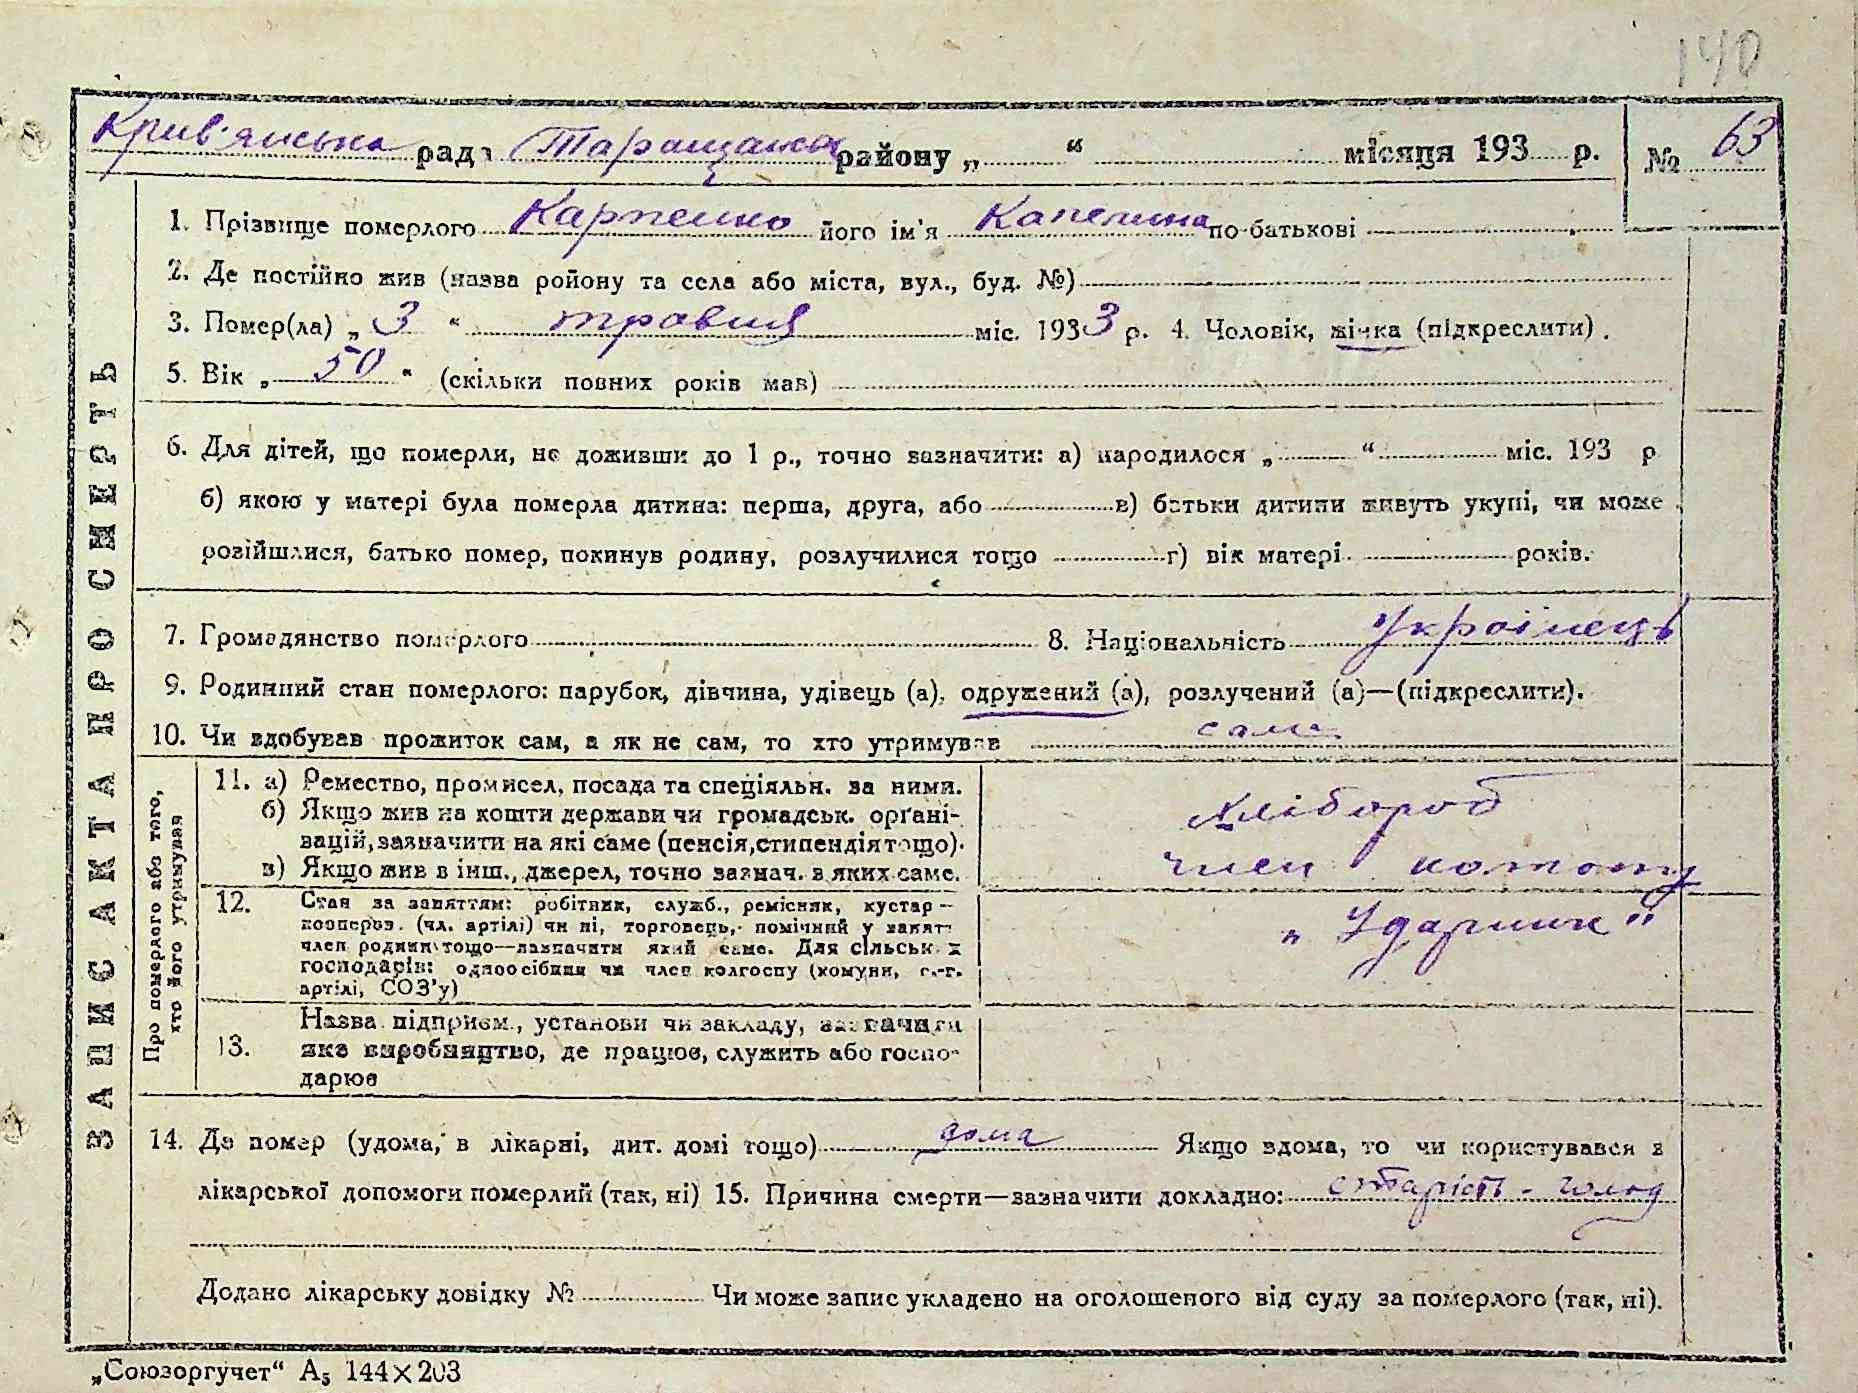 140
Крив'янська рада Таращанск району „ “ місяця 193 р. № 63
1. Прізвище померлого Карпенко його ім'я Капелина по батькові
2. Де постійно жив (назва ройону та села або міста, вул., буд. №)
3. Помер(ла) „ 3 “ травня міс. 1933 р. 4. Чоловік, жінка (підкреслити).
5. Вік „ 50 “ (скільки повних років мав)
6. Для дітей, що померли, не доживши до 1 р., точно зазначити: а) народилося „ “ міс. 193 р
б) якою у матері була померла дитина: перша, друга, або в) батьки дитини живуть укупі, чи може
розійшлися, батько помер, покинув родину, розлучилися тощо г) вік матері років.
7. Громадянство померлого 8. Національність Українець
9. Родинний стан померлого: парубок, дівчина, удівець (а), одружений (а), розлучений (а)—(підкреслити).
10. Чи здобував прожиток сам, а як не сам, то хто утримував сама
ЗАПИС АКТА ПРО СМЕРТЬ
Про померлого або того,
хто його утримував
11. а) Ремество, промисел, посада та спеціяльн. за ними.
б) Якщо жив на кошти держави чи громадськ. орґані-
зацій, зазначити на які саме (пенсія, стипендія тощо).
в) Якщо жив в інш., джерел, точно зазнач. в яких саме.
Хлібороб
член
12. Стан за заняттям: робітник, служб., ремісник, кустар—
коопероз. (чл. артілі) чи ні, торговець, помічний у занят
член родини тощо—зазначити який саме. Для сільськ х
господарів: одноосібник чи член колгоспу (комуни, с.-г.
артілі, СОЗ'у)
„Ударник"
13. Назва підприєм., установи чи закладу, зазначити
яке виробництво, де працює, служить або госпо-
дарює
14. Де помер (удома, в лікарні, дит. домі тощо) дома Якщо вдома, то чи користувався з
лікарської допомоги померлий (так, ні) 15. Причина смерти—зазначити докладно: старість - голод
Додано лікарську довідку № Чи може запис укладено на оголошеного від суду за померлого (так, ні).
„Союзоргучет“ А5 144×203